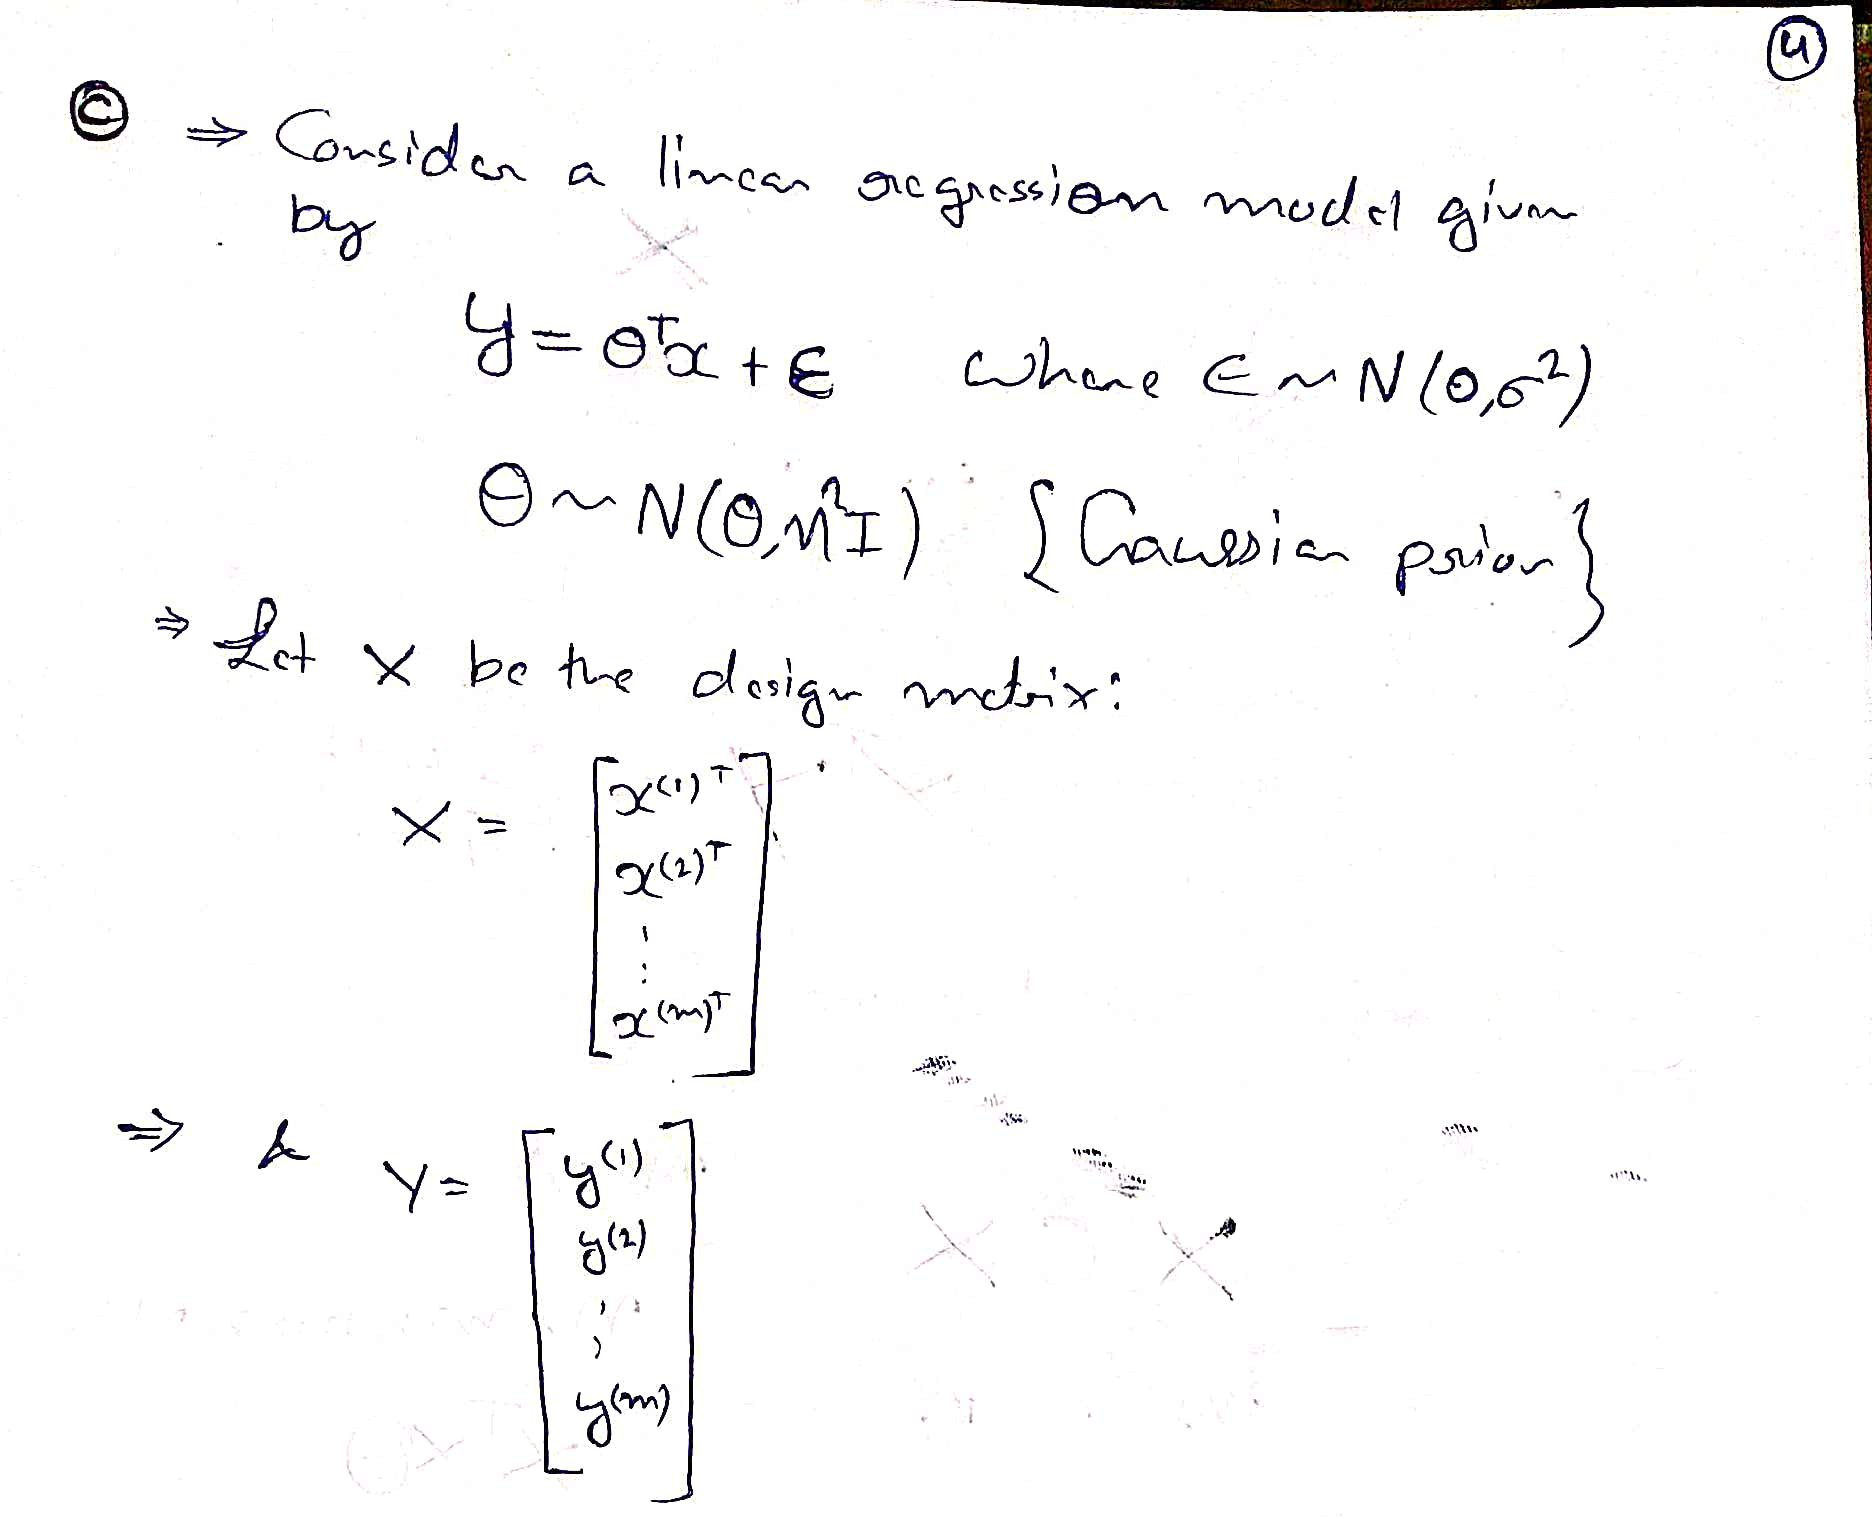 ④
ⓒ ⇒ Consider a linear regression model given
by
y = θᵀx + ϵ where ϵ ~ N(0,σ²)
θ ~ N(0,η²I) {Gaussian prior}
⇒ Let X be the design matrix:
X = [x⁽¹⁾ᵀ
x⁽²⁾ᵀ
⋮
x⁽ᵐ⁾ᵀ]
⇒ & Y = [y⁽¹⁾
y⁽²⁾
⋮
y⁽ᵐ⁾]